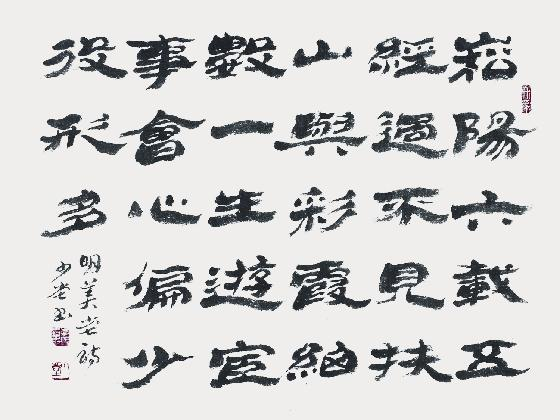 崧陽六載五
經過不見扶
山與彩霞細
數一生遊宦
事會心偏少
役形多
明美堂詩